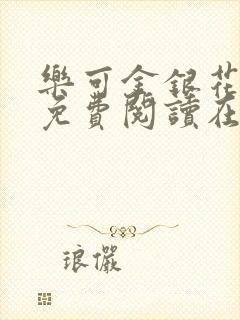 樂可金銀花
免費閱讀在
琅儼